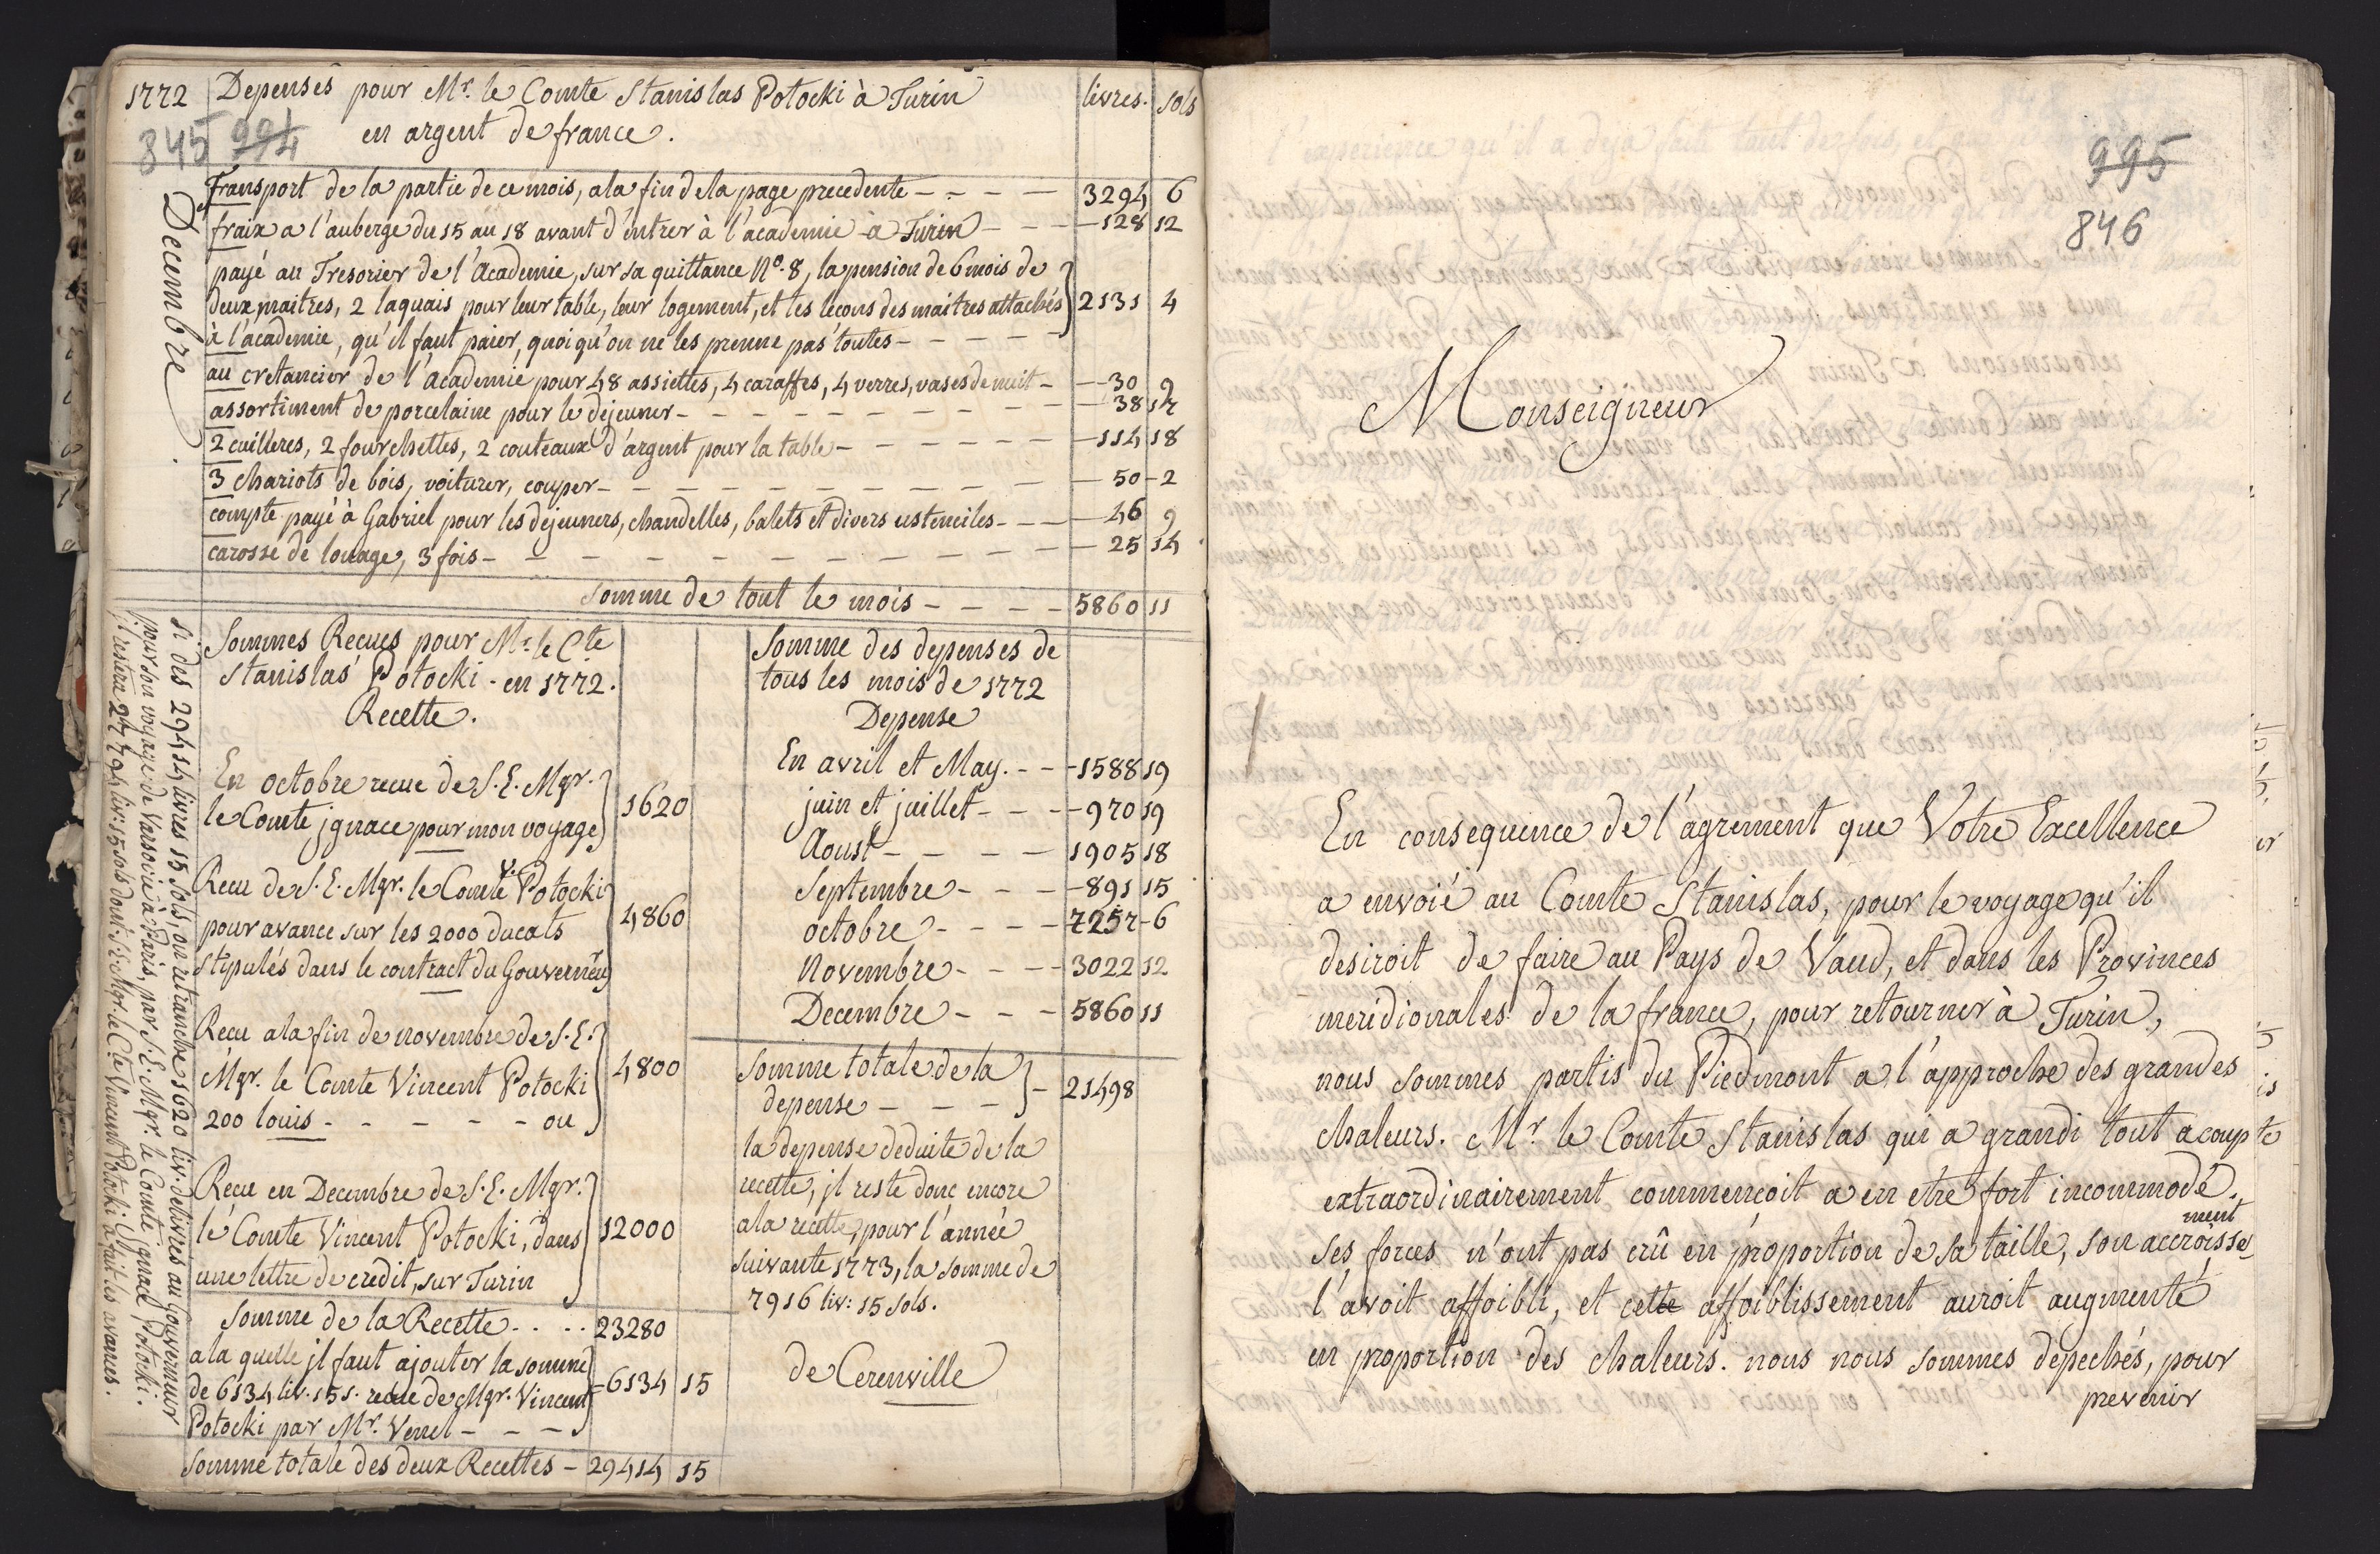 1772 Depenses pour Mr. le Comte Stanislas Potocki à Turin livres. sols
en argent de france.
845 994
Decembre.
Transport de la partie de ce mois, a la fin de la page precedente - - - - 3294 6
fraix a l'auberge du 15 au 18 avant d'entrer à l'academie à Turin - - - 128 12
payé au Tresorier de l'Academie, sur sa quittance No. 8, la pension de 6 mois de
deux maitres, 2 laquais pour leur table, leur logement, et les lecons des maitres attachés 2131 4
à l'academie, qu'il faut paier, quoiqu'on ne les prenne pas toutes - - - -
au cretancier de l'Academie pour 48 assiettes, 4 caraffes, 4 verres, vases de nuit - 30 9
assortiment de porcelaine pour le dejeuner - - - - - - - - 38 17
2 cuilleres, 2 fourchettes, 2 couteaux d'argent pour la table - - - - - - 114 18
3 chariots de bois, voiturer, couper - - - - - - - - 50 - 2
compte payé à Gabriel pour les dejeuners, chandelles, balets et divers ustenciles - - - 46 9
carosse de louage, 3 fois - - - - - - - - - - 25 14
Somme de tout le mois - - - - 5860 11
Sommes Recues pour Mr. le Cte
Stanislas Potocki - en 1772.
Recette.
En octobre recue de S. E. Mgr.
le Comte jgnace pour mon voyage 1620
Recu de S. E. Mgr. le Comte V. Potocki
pour avance sur les 2000 ducats 4860
stipulés dans le contract du Gouverneur
Recu a la fin de novembre de S. E.
Mgr. le Comte Vincent Potocki 4800
200 louis - - - - - ou
Recu en Decembre de S. E. Mgr.
le Comte Vincent Potocki, dans 12000
une lettre de credit, sur Turin
Somme de la Recette - . . . 23280
a la quelle jl faut ajouter la somme
de 6134 liv. 15 s. recue de Mgr. Vincent - 6134 15
Potocki par Mr. Verrel - - -
Somme totale des deux Recettes - 29414 15
Somme des depenses de
tous les mois de 1772
Depense
En avril et May. - - 1588 19
juin et juillet - - - 970 19
Aoust - - - - 1905 18
Septembre - - - 891 15
octobre - - - - 7257 - 6
Novembre - - - 3022 12
Decembre - - - 5860 11
Somme totale de la
depense - - - 21498
la depense deduite de la
recette, jl reste donc encore
a la recette, pour l'année
suivante 1773, la somme de
7916 liv: 15 sols.
de Cerenville
si des 29414 livres 15 sols, on retranche 1620 liv. delivrés au Gouverneur
pour son voyage de Varsovie à Paris, par S. E. Mgr. le Comte jgnace Potocki.
jl restera 27794 liv: 15 sols dont S. E. Mgr. le Cte Vincent Potocki a fait les avances.
995
846
Monseigneur
En consequence de l'agrement que Votre Excellence
a envoié au Comte Stanislas, pour le voyage qu'il
desiroit de faire au Pays de Vaud, et dans les Provinces
meridionales de la france, pour retourner à Turin,
nous sommes partis du Piedmont a l'approche des grandes
chaleurs. Mr. le Comte Stanislas qui a grandi tout a coup
extraordinairement commencoit a en etre fort incommodé.
ses forces n'ont pas crû en proportion de sa taille, son accroisse
ment
l'avoit affoibli, et cette affoiblissement auroit augmenté
en proportion des chaleurs. nous nous sommes depechés, pour
prevenir